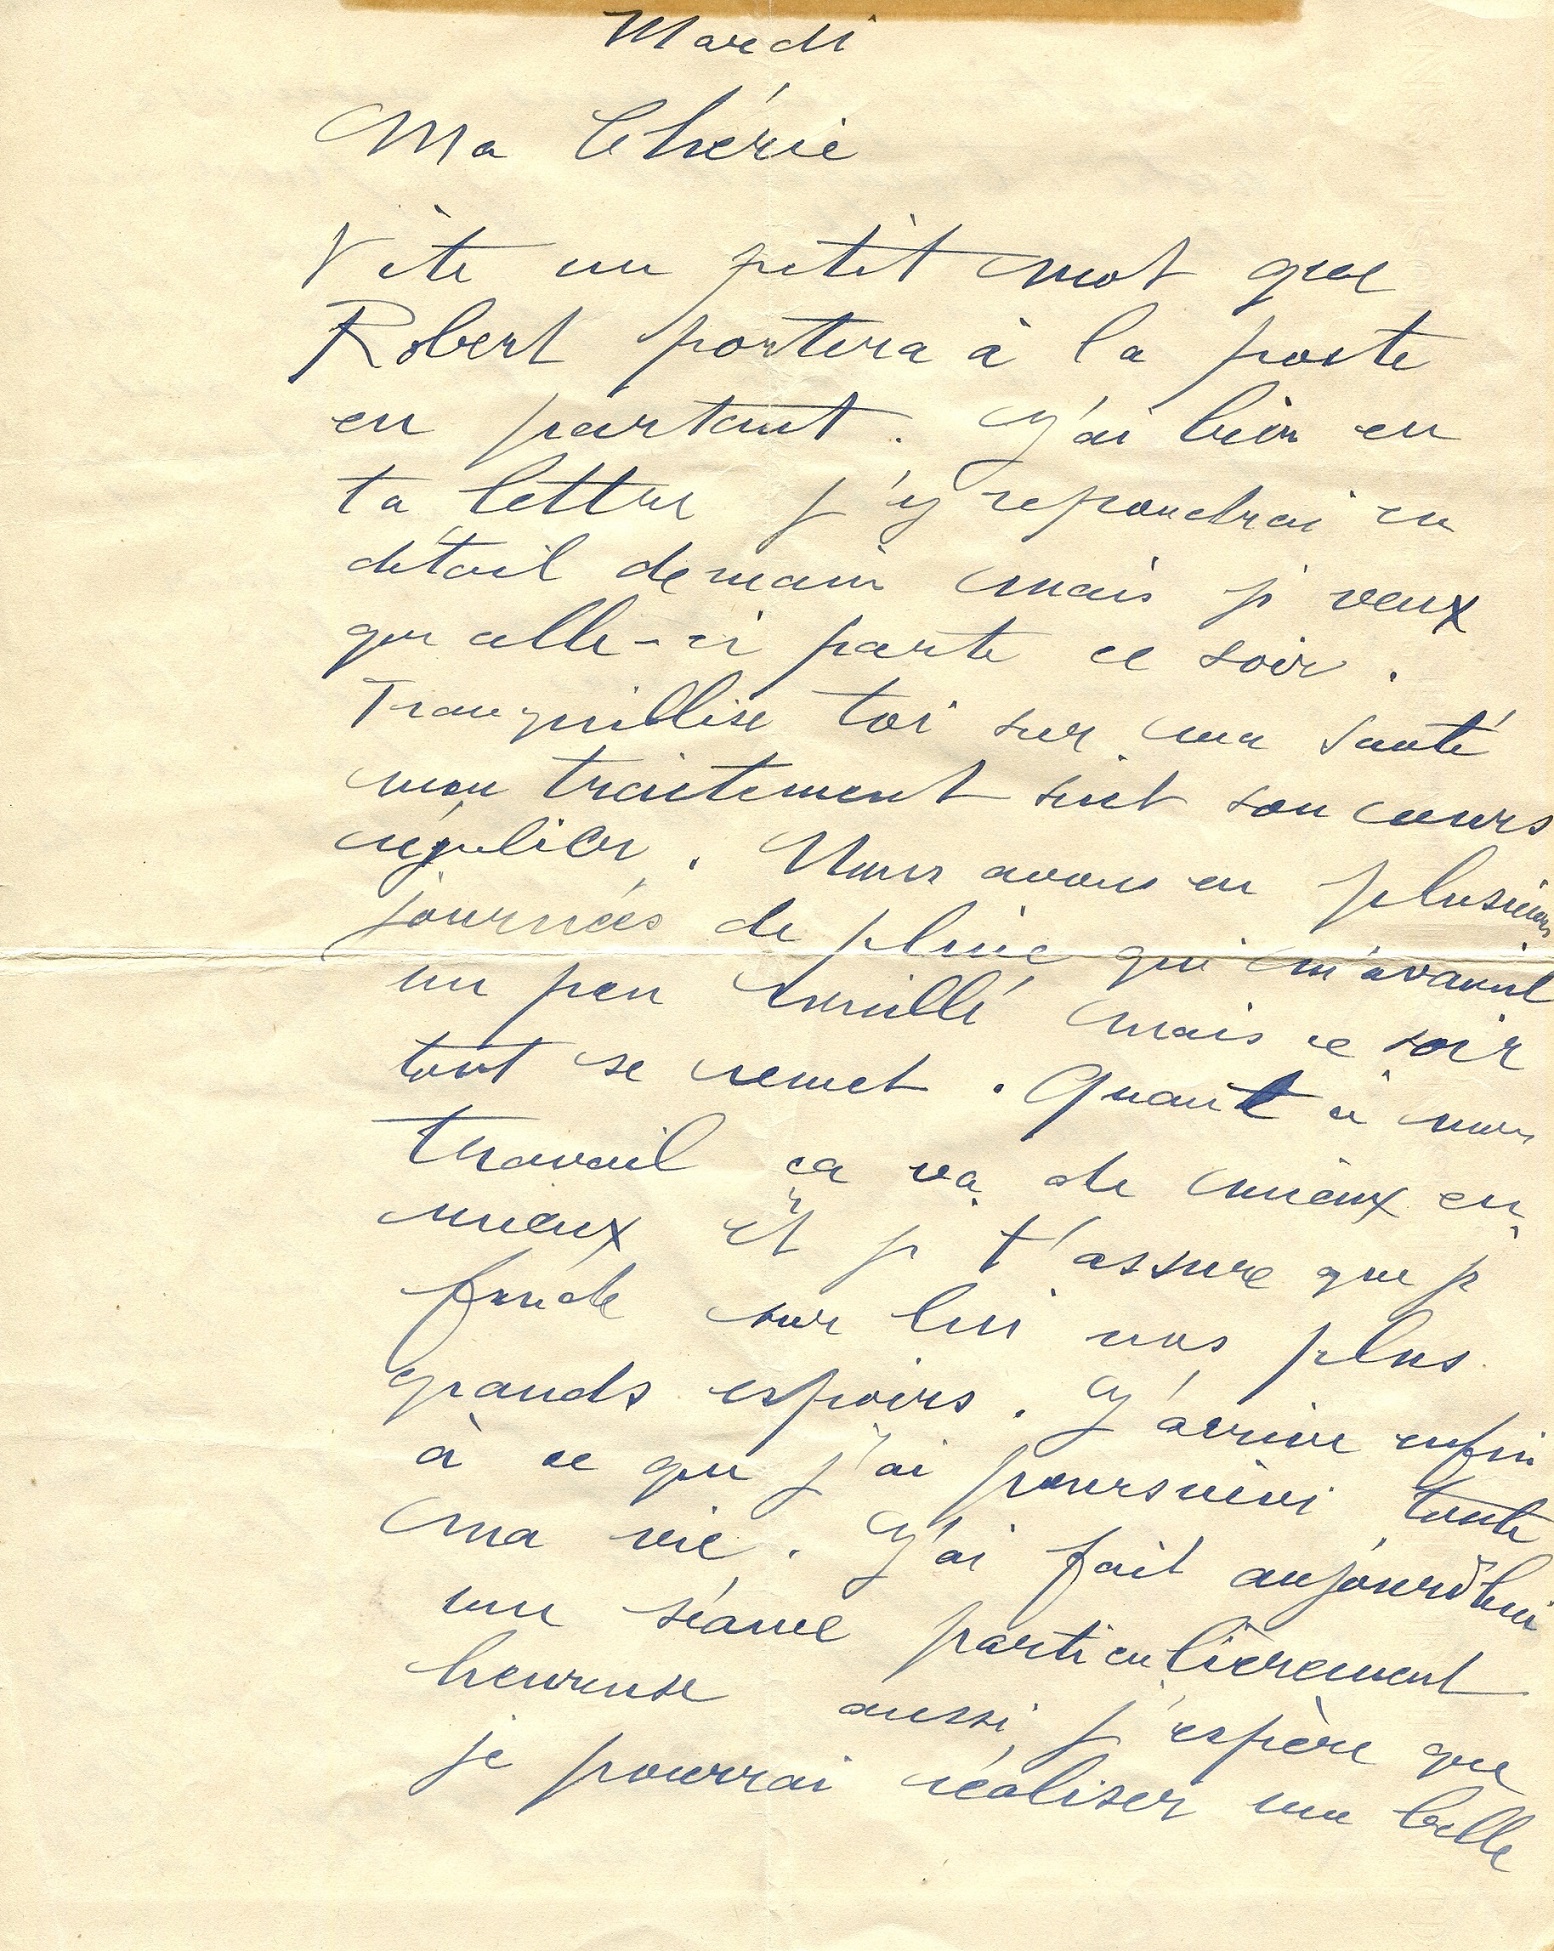 Mardi
Ma Chérie
Vite un petit mot que
Robert portera à la poste
en partant. J'ai bien eu
ta lettre j'y repondrai en
détail demain mais je veux
que celle-ci parte ce soir.
Tranquillise toi sur ma santé
mon traitement suit son cours
régulier. Nous avons eu plusieurs
journées de pluie qui m'avaient
un peu rouillé mais ce soir
tout se remet. Quant à mon
travail ça va de mieux en
mieux et je t'assure que je
fonde sur lui nos plus
grands espoirs. J'arrive enfin
à ce que j'ai poursuivi toute
ma vie. J'ai fait aujourd'hui
une séance particulièrement
heureuse aussi j'espère que
je pourrai réaliser une belle